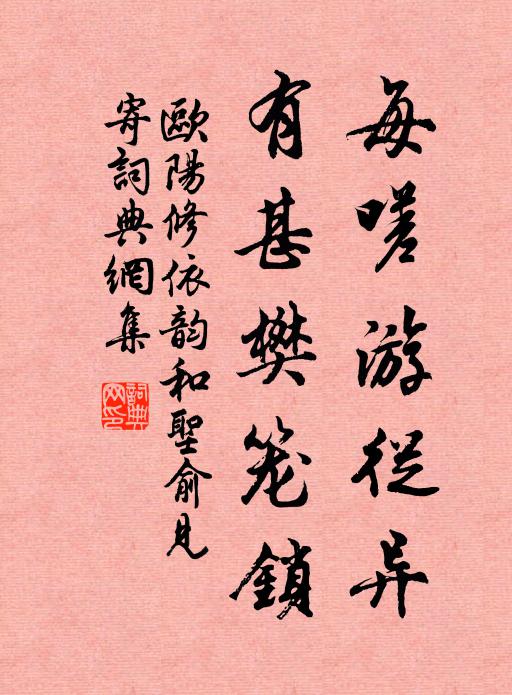 每嗟游從异
有甚樊笼鎖
歐陽修依韵和聖俞見
寄詞典網集
詞典網印